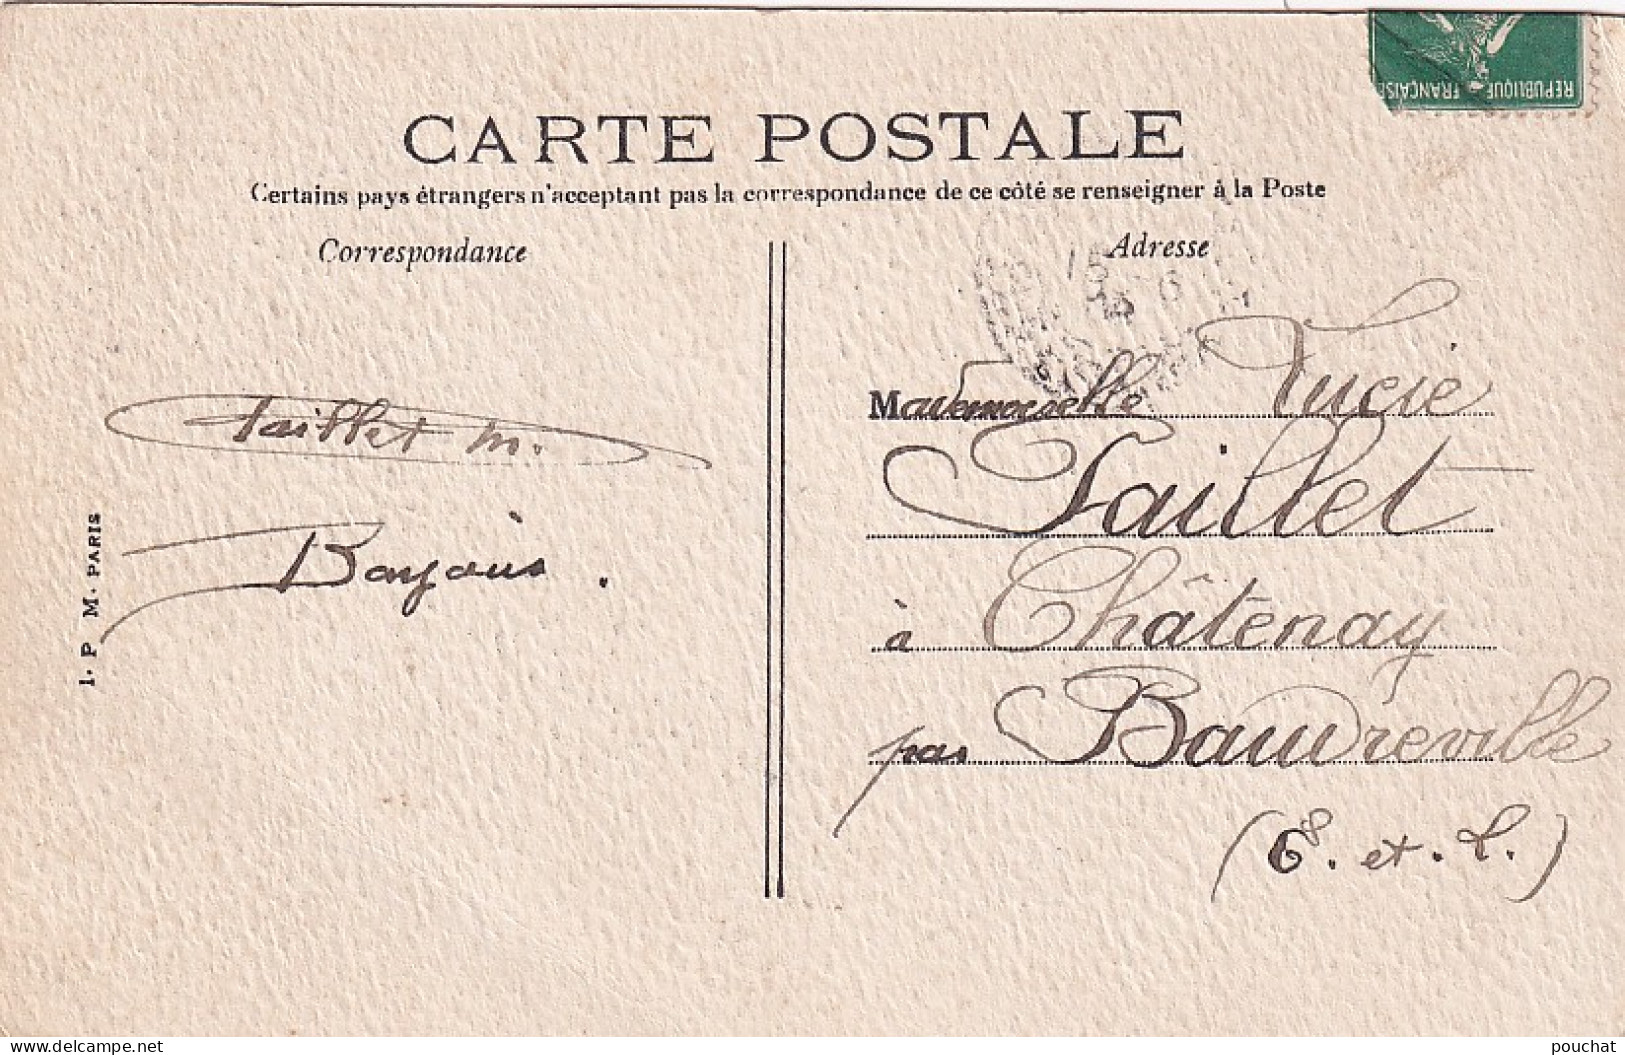 REPUBLIQUE FRANÇAISE
CARTE POSTALE
Certains pays étrangers n'acceptant pas la correspondance de ce côté se renseigner à la Poste
Correspondance
Adresse
taillet m.
1. P M. PARIS
Mademoiselle Lucie
Taillet
à Châtenay
par Baudreville
(E. et. L.)
delcampe.net
pouchat